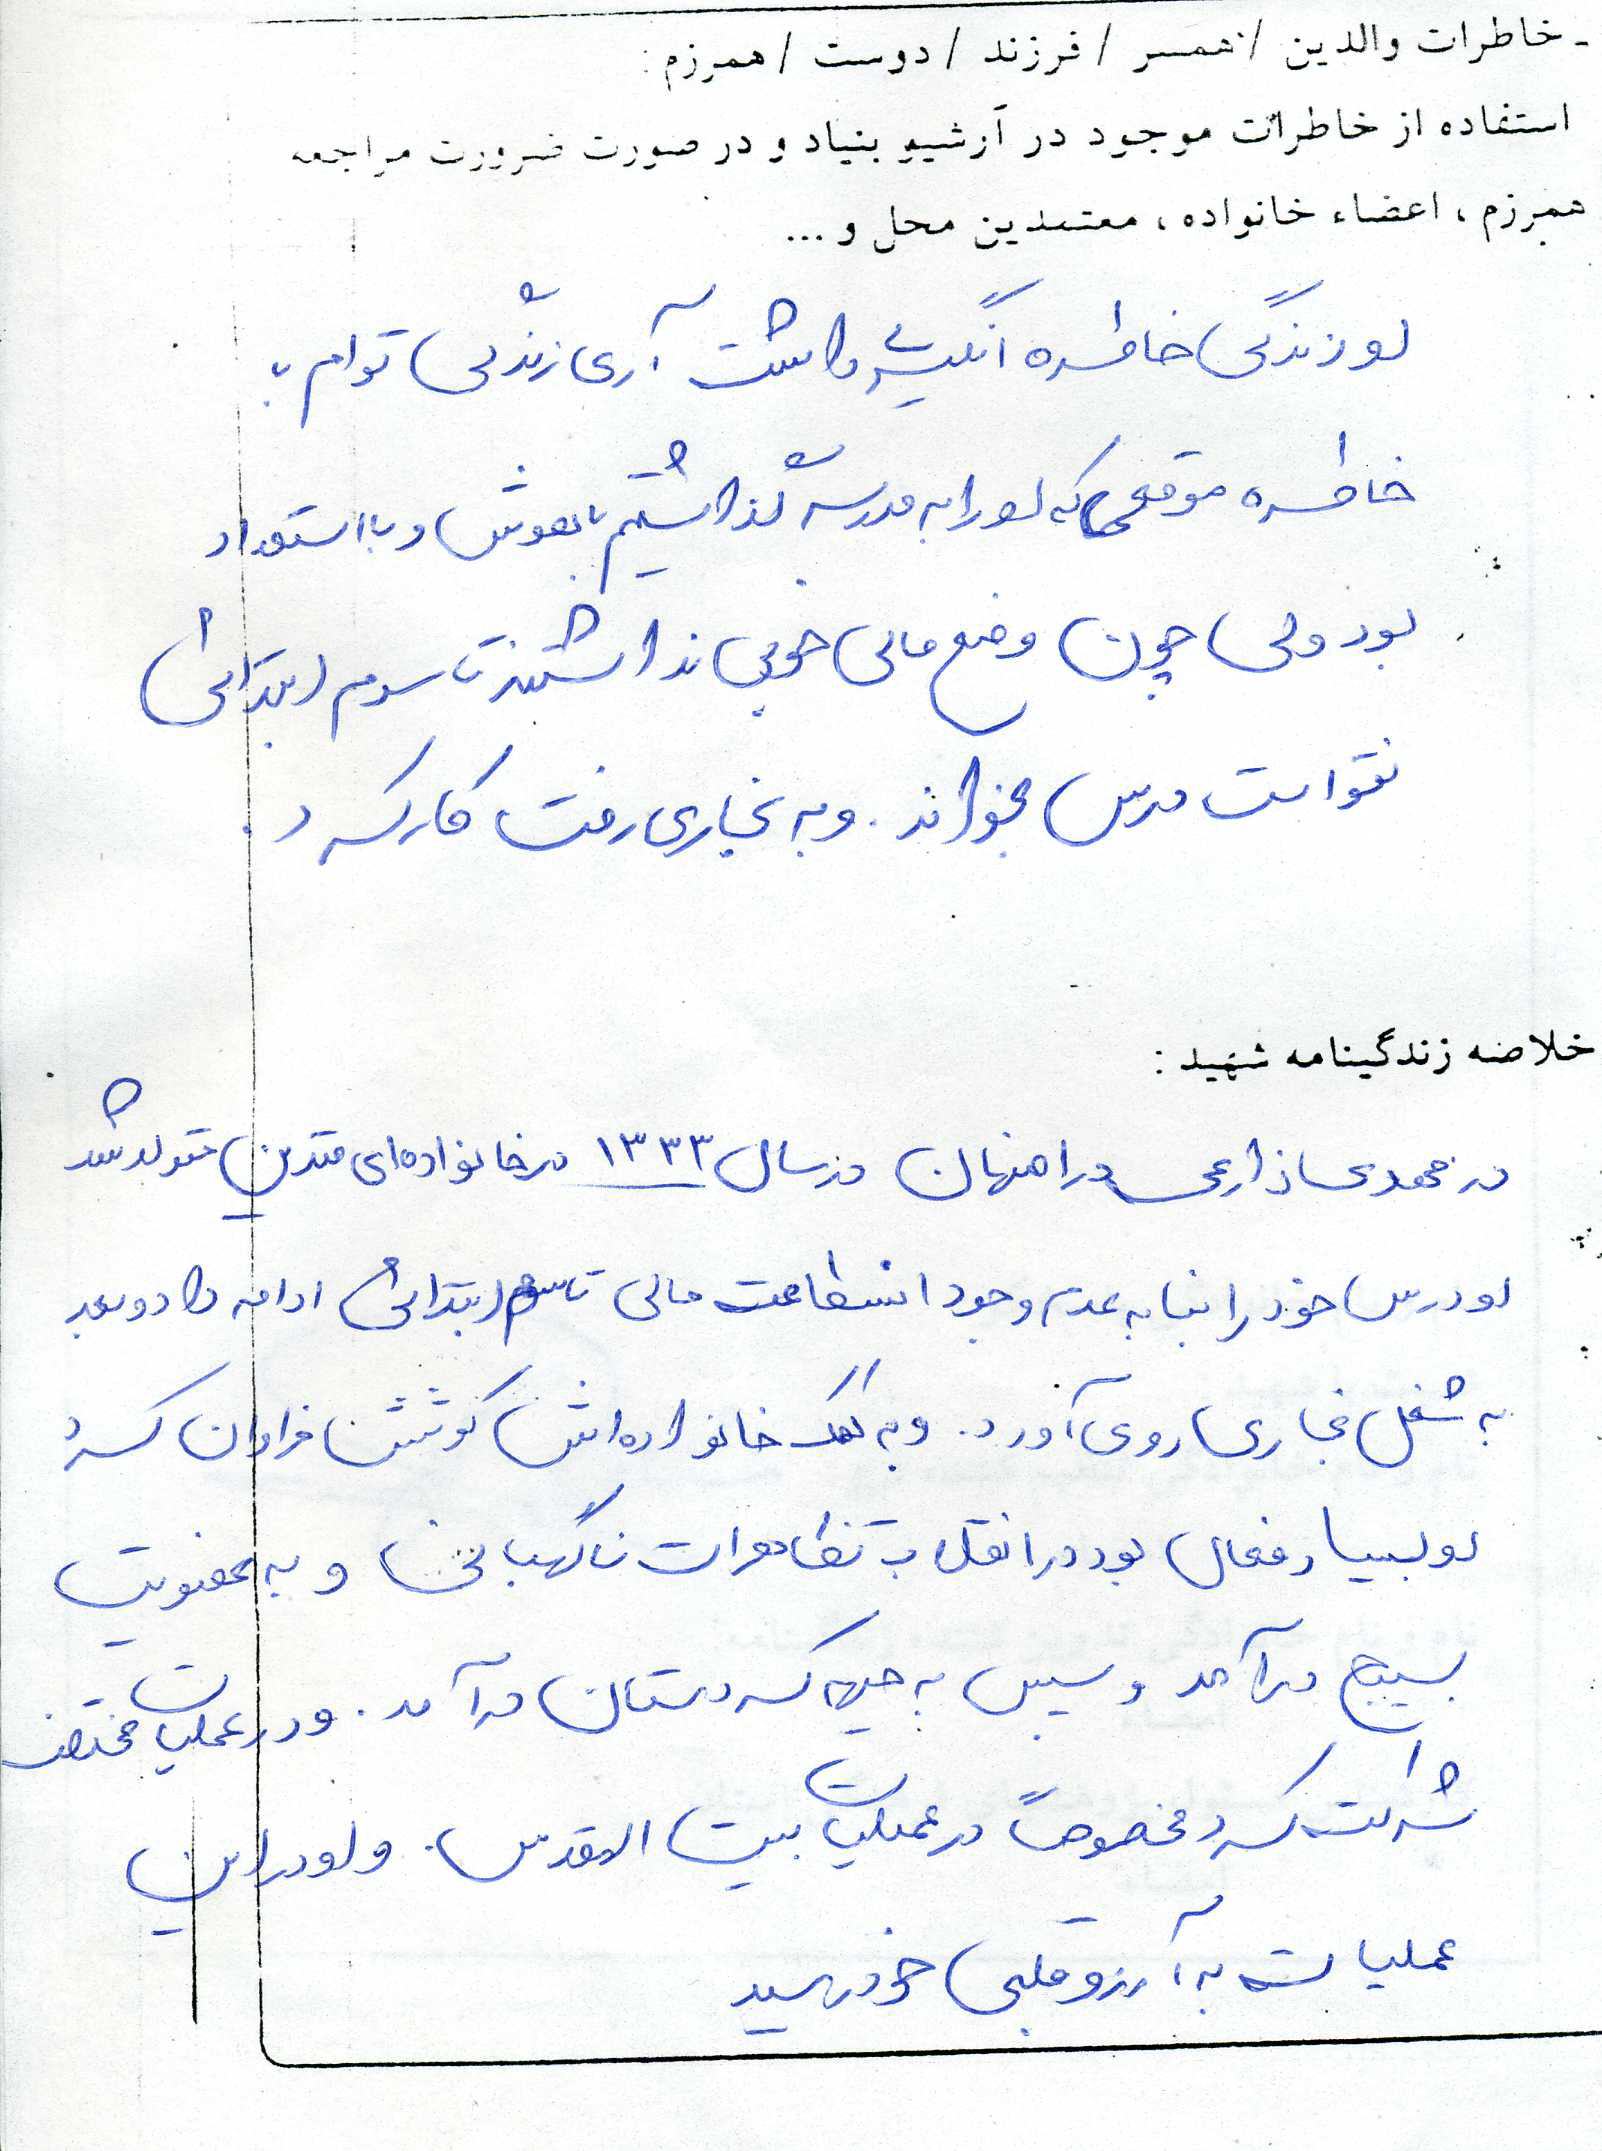 - خاطرات والدین / همسر / فرزند / دوست / همرزم :
استفاده از خاطرات موجود در آرشیو بنیاد و در صورت ضرورت مراجعه
همرزم ، اعضاء خانواده ، معتمدین محل و ...
او زندگی خاطره انگیزی داشت آری زندگی توام با
خاطره موقعی که او را به مدرسه گذاشتیم باهوش و با استعداد
بود ولی چون وضع مالی خوبی نداشتیم تا سوم ابتدائی
نتوانست درس بخواند . و به نجاری رفت کار کرد .
خلاصه زندگینامه شهید :
در اصفهان در سال ۱۳۳۳ در خانواده‌ای متدین متولد شد
او درس خود را بنا به عدم وجود استطاعت مالی تا سوم ابتدائی ادامه داد و بعد
به شغل نجاری روی آورد . و به کمک خانواده‌اش کوشش فراوان کرد
او بسیار فعال بود در انقلاب تظاهرات نگهبانی و به عضویت
بسیج درآمد و سپس به جبهه کردستان درآمد . و در عملیات مختلف
شرکت کرد مخصوصاً در عملیات بیت المقدس . و او در این
عملیات به آرزو قلبی خود رسید